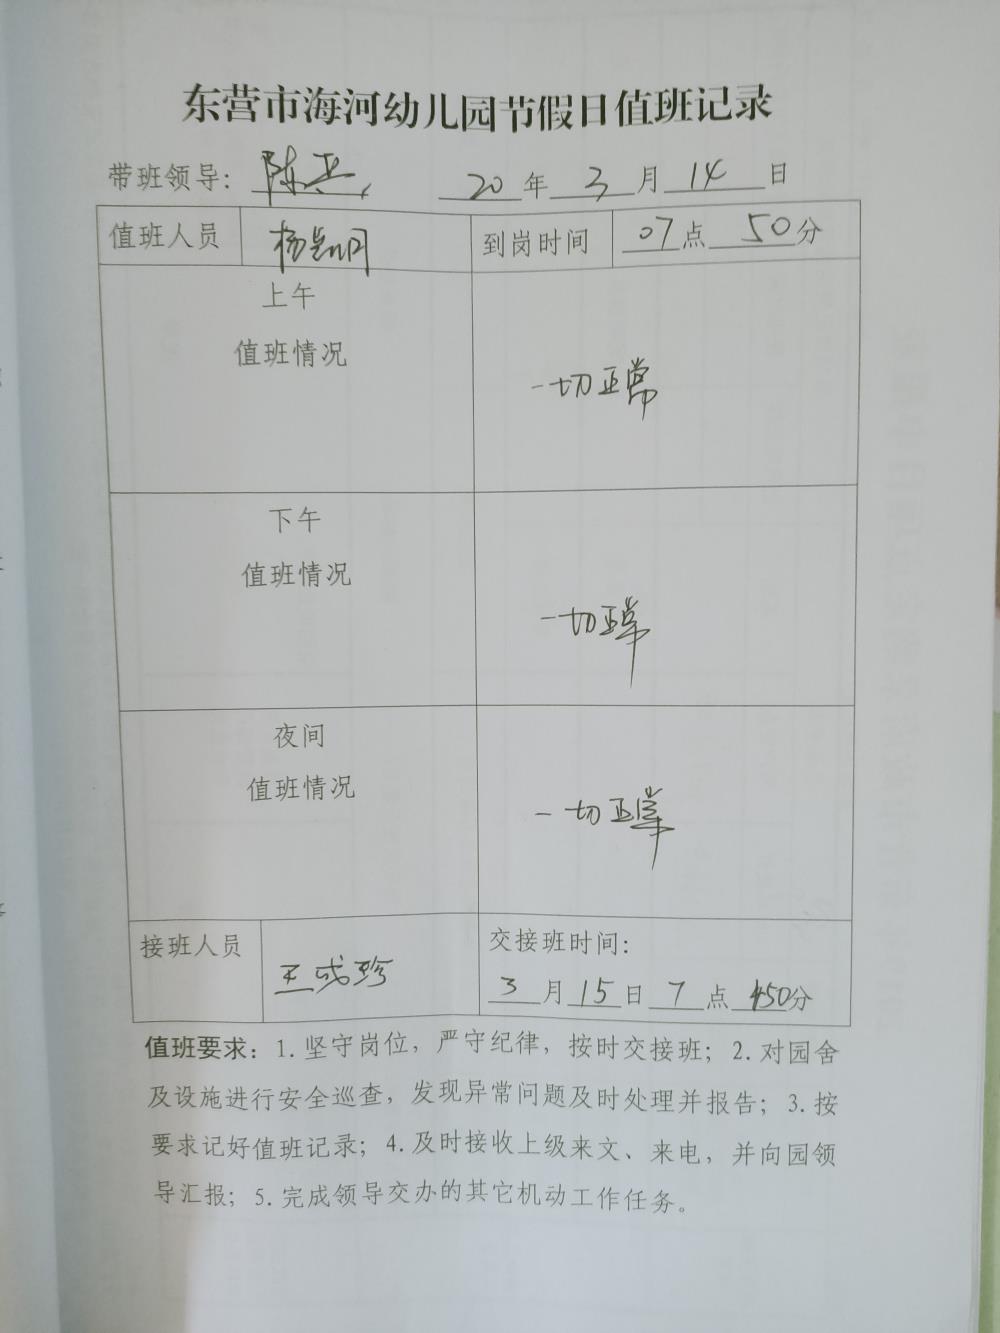 东营市海河幼儿园节假日值班记录
带班领导：陈亚 20年3月14日
值班人员 杨 到岗时间 07点50分
上午
值班情况
一切正常
下午
值班情况
一切正常
夜间
值班情况
一切正常
接班人员 王成珍 交接班时间：
3月15日7点50分
值班要求：1. 坚守岗位，严守纪律，按时交接班；2. 对园舍
及设施进行安全巡查，发现异常问题及时处理并报告；3. 按
要求记好值班记录；4. 及时接收上级来文、来电，并向园领
导汇报；5. 完成领导交办的其它机动工作任务。